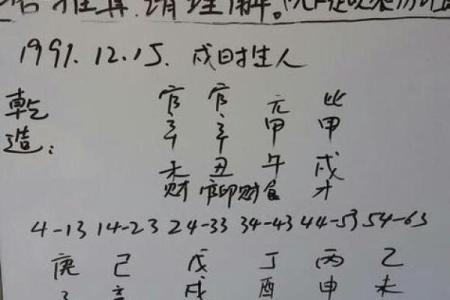 1991.12.15. 戌时生人
乾造：
官 官 元 比
辛 辛 甲 甲
未 丑 午 戌
财 官印财 食 才
4-13 14-23 24-33 34-43 44-53 54-63
庚 己 戊 丁 丙 乙
戌 酉 申 未